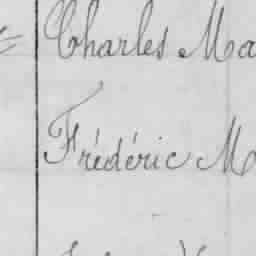 Charles Ma
Frédéric M